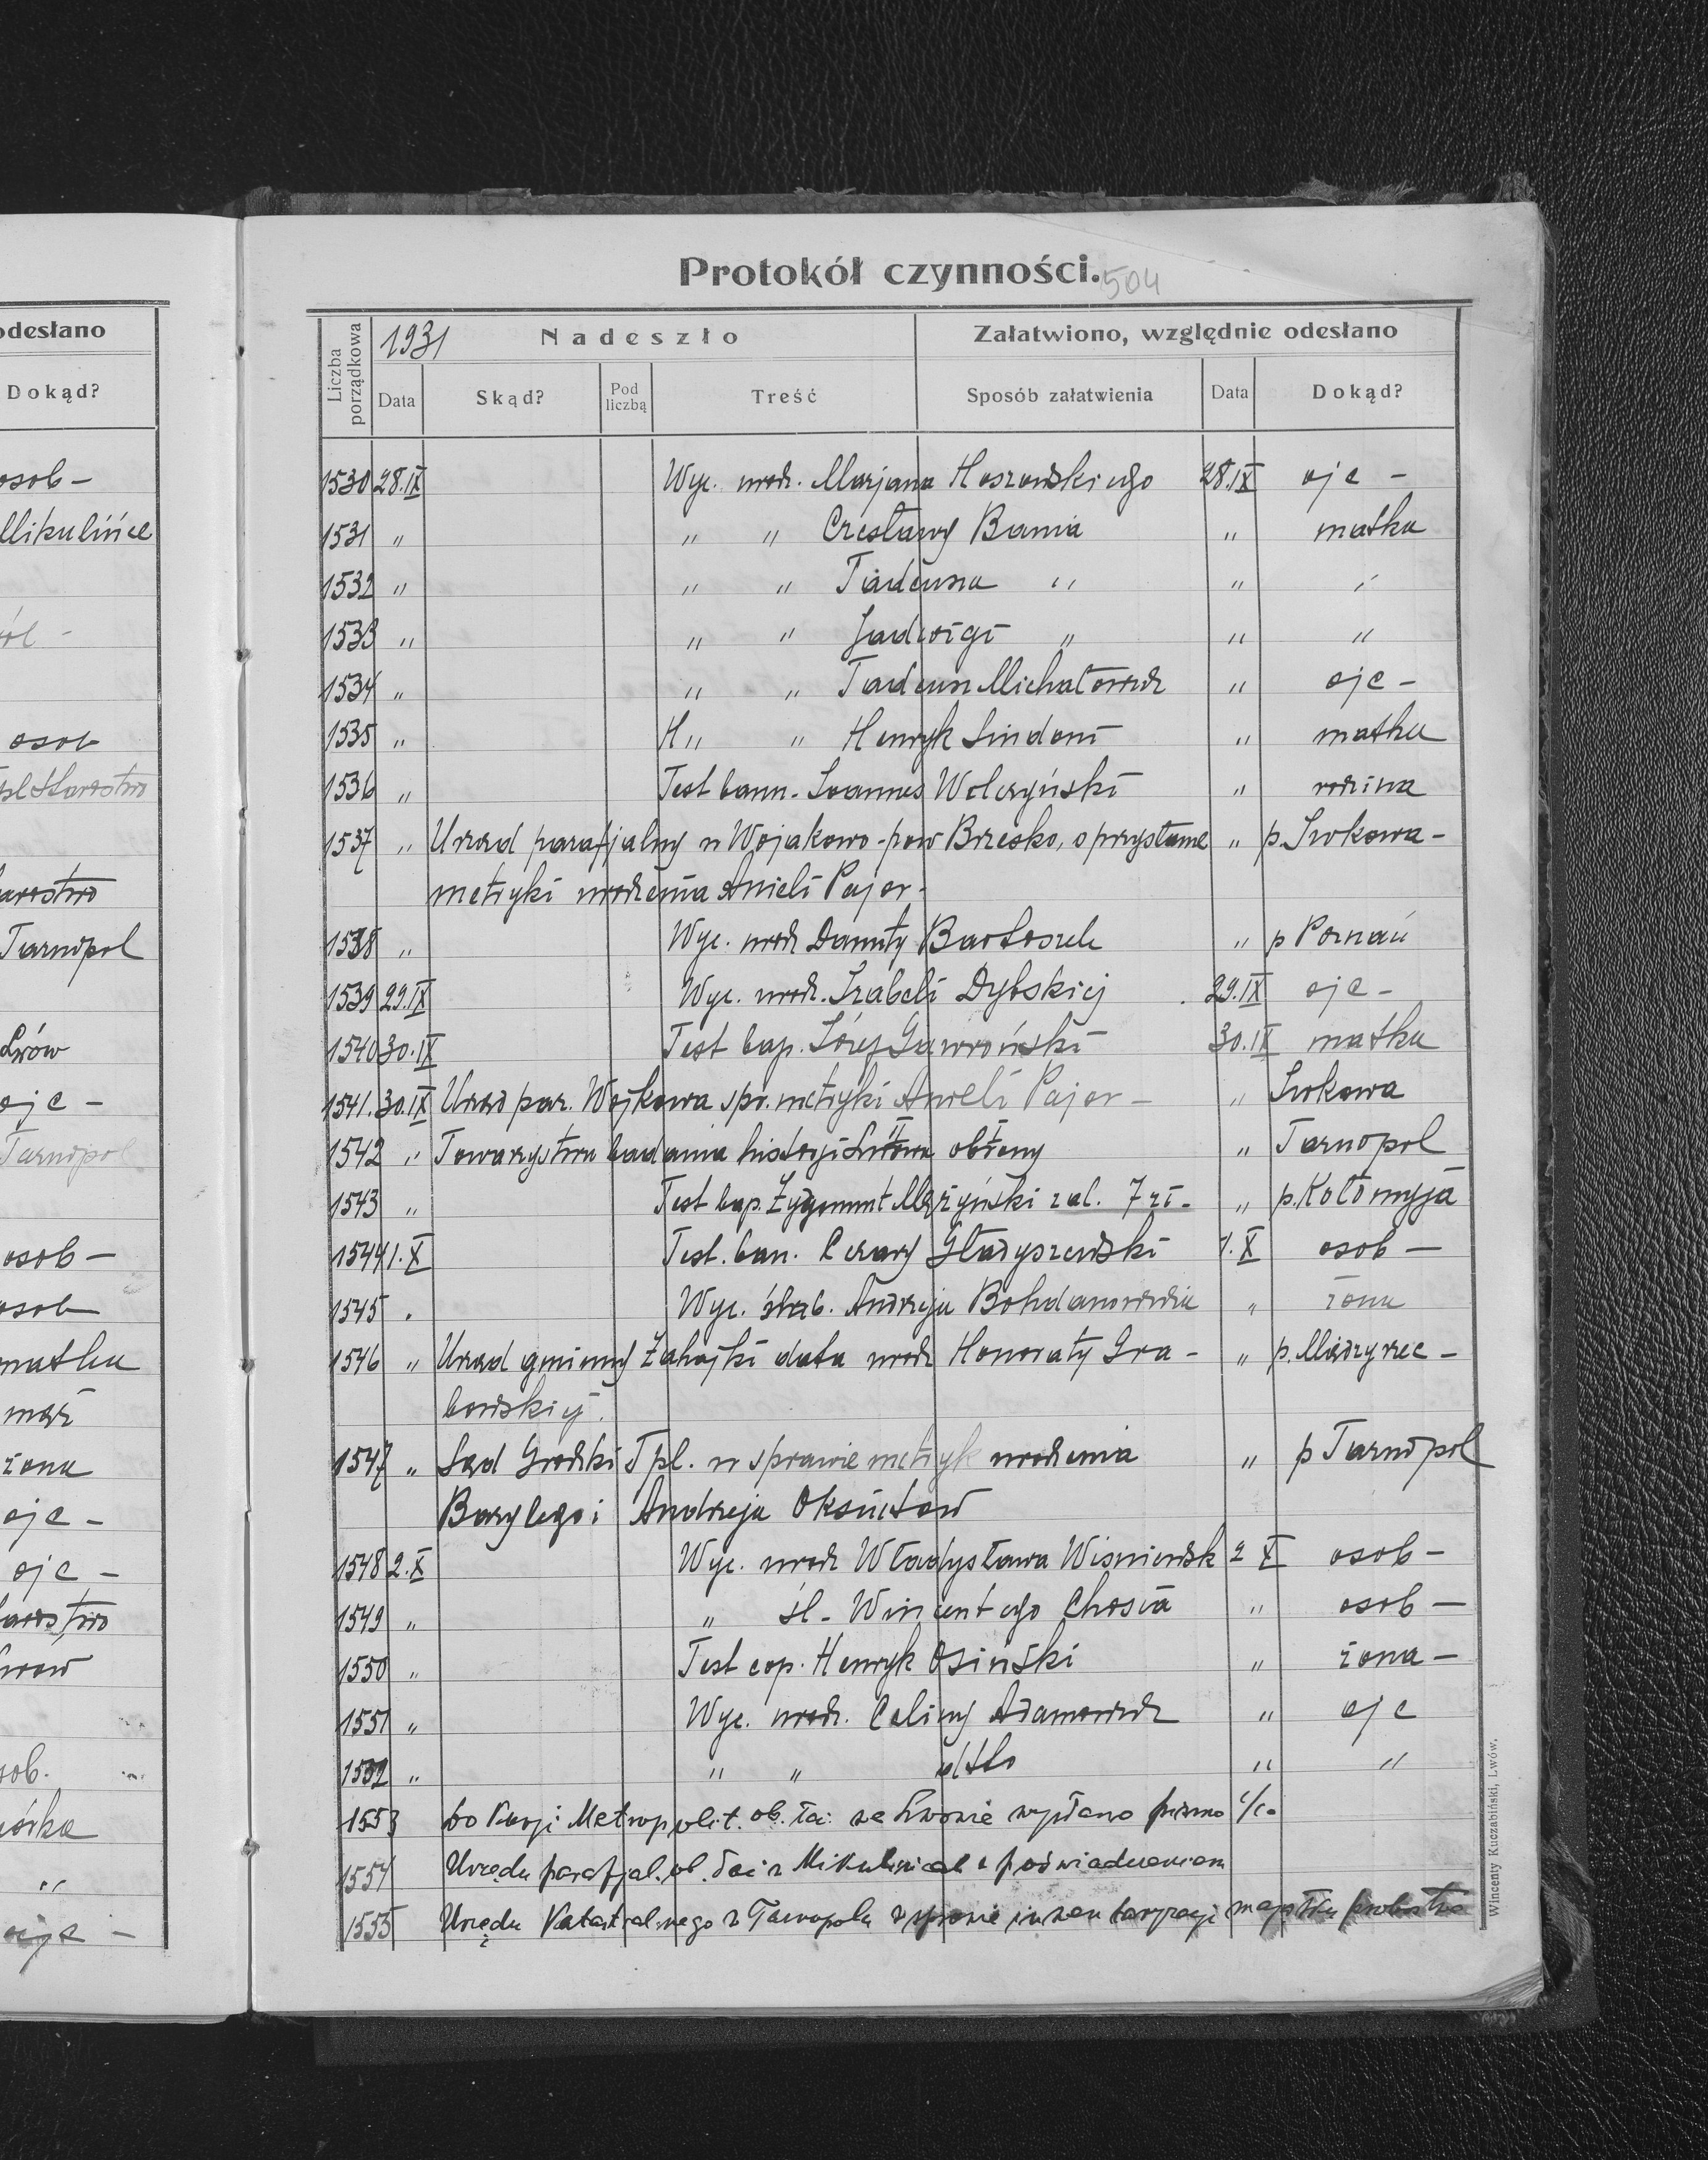 odesłano
Dokąd?
osob -
Mikulińce
osob
Tarnopol
Lwów
ojc -
Tarnopol
osob -
osob
matka
mąż
żona
ojc -
ojc -
Protokół czynności. 504
Liczba porządkowa
1931 Nadeszło
Załatwiono, względnie odesłano
Data Skąd? Pod liczbą Treść Sposób załatwienia Data Dokąd?
1530 28.IX Wyc. urodz. Marjana Hoszowskiego 28.IX ojc -
1531 " " " Czesławy Bania " matka
1532 " " " Tadeusza " " "
1533 " " " Jadwigi " " "
1534 " " " Tadeusz Michałowicz " ojc -
1535 " H " " Henryk Lindoni " matka
1536 " Test bann. Joannes Wolczyński " rodzina
1537 " Urząd parafjalny w Wojakowo - pow Brzesko, o przysłanie " p. Iwkowa -
metryki urodzenia Anieli Pajor -
1538 " Wyc. urodz Danuty Bartoszek " p Poznań
1539 29.IX Wyc. urodz. Izabeli Dybskiej 29.IX ojc -
1540 30.IX Test bap. Józef Gawroński 30.IX matka
1541. 30.IX Urząd par. Wojkowa spr. metryki Anieli Pajor - " Iwkowa
1542 " Towarzystwu badania historji obrony " Tarnopol
1543 " Test bap. Zygmunt Mężyński zal. 7 zł - " p. Kołomyja
1544 1.X Test. ban. Cezary Gładyszewski 1.X osob -
1545 . Wyc. ślub. Andrzeja Bohdanowicza " żona
1546 " Urząd gminny Zahajki data urodz Honoraty Gra - " p. Międzyrzec -
bowskiej.
1547 " Sąd Grodzki Tpl. w sprawie metryk urodzenia " p Tarnopol
Bazylego i Andrzeja Oksiutów
1548 2.X Wyc. urodz Władysława Wiśniewsk 2 X osob -
1549 " " śl - Wincentego Chosia " osob -
1550 " Test cop. Henryk Osiński " żona -
1551 " Wyc. urodz. Celiny Adamowicz " ojc
1552 " " " " "
1553 Do Kurji Metropolit. ob. łac. we Lwowie wysłano pismo
1554 Urzędu parafjal. ob. łac w Mikulińcach z poświadczeniem
1555 Urzędu Katastralnego w Tarnopolu w sprawie inwentaryzacji majątku probostwa
Wincenty Kuczabiński, Lwów.